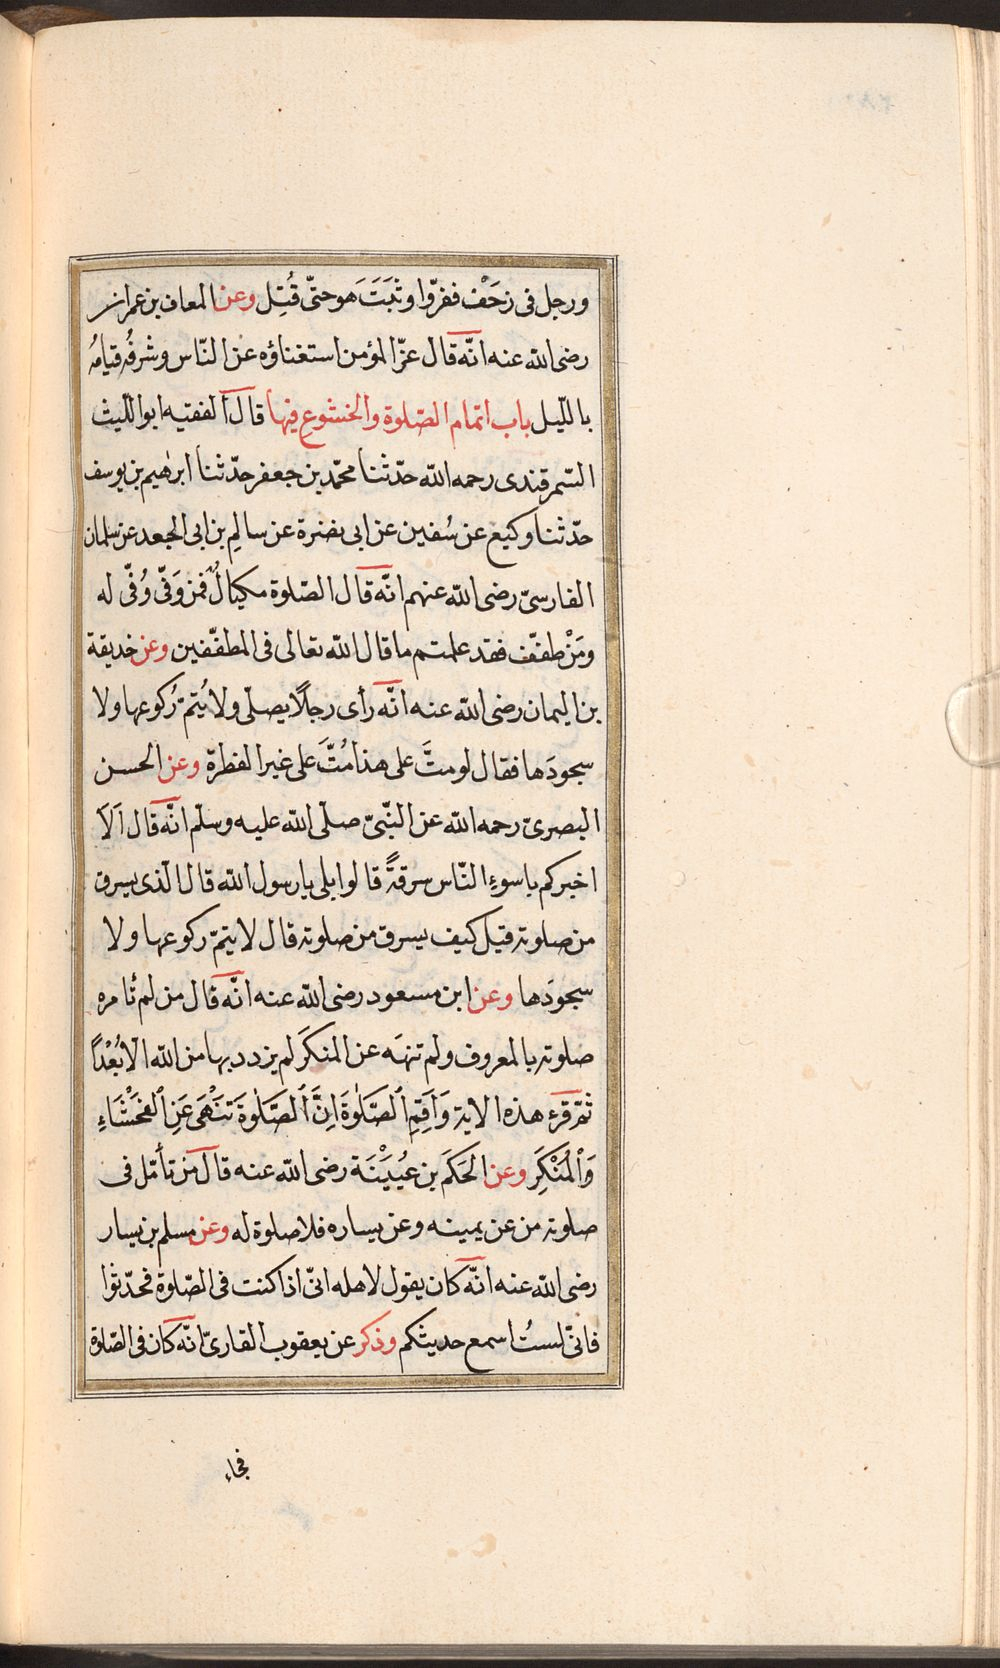 ورجل فى زحَفْ ففرّوا وثبَتَ هو حتّى قُتِل وعن المعاف بن عمران
رضى الله عنه انّه قال عزّ المؤمن استغناؤه عن النّاس وشرفُه قيامُه
بالليل باب اتمام الصّلوة والخشوع فيها قال الفقيه ابو اللّيث
السّمرقندى رحمه الله حدّثنا محمّد بن جعفر حدّثنا ابرهيم بن يوسف
حدّثنا وكيع عن سُفين عن ابى نضرة عن سالِم بن ابى الجعد عن سلمان
الفارسىّ رضى الله عنهم انّه قال الصّلوة مكيالٌ فمن وَفّى وُفّى له
ومَنْ طفّف فقد علمتم ما قال الله تعالى فى المطفّفين وعن خديقة
بن اليمان رضى الله عنه انّه رأى رجلًا يصلّى ولا يُتمّ رُكوعها ولا
سجودَها فقال لو متَّ على هذا مُتَّ على غير الفطرة وعن الحسن
البصرىّ رحمه الله عن النّبىّ صلّى الله عليه وسلّم انّه قال اَلاَ
اخبركم باسوءِ النّاس سرقةً قالوا بلى يا رسول الله قال الّذى يسرق
من صلوته قيل كيف يسرق من صلوته قال لا يتمّ ركوعها ولا
سجودَها وعن ابن مسعود رضى الله عنه انّه قال من لم تأمره
صلوته بالمعروف ولم تنهَه عن المنكَر لم يزدد بها من الله الّا بُعْدًا
ثمّ قرء هذه الاية وَاَقِمِ ٱلصَّلٰوةَ اِنَّ ٱلصَّلٰوةَ تَنْهَى عَنِ ٱلفَحْشَاءِ
وَٱلْمُنْكَرِ وعن الحَكَم بن عُيَيْنَة رضى الله عنه قال من تأمّل فى
صلوته من عن يمينه وعن يساره فلا صلوة له وعن مسلم بن يسار
رضى الله عنه انّه كان يقول لاهله انّى اذا كنت فى الصّلوة فحدّثوا
فانّى لستُ اسمع حديثكم وذكر عن يعقوب القارىّ انّه كان فى الصّلاة
فجاء